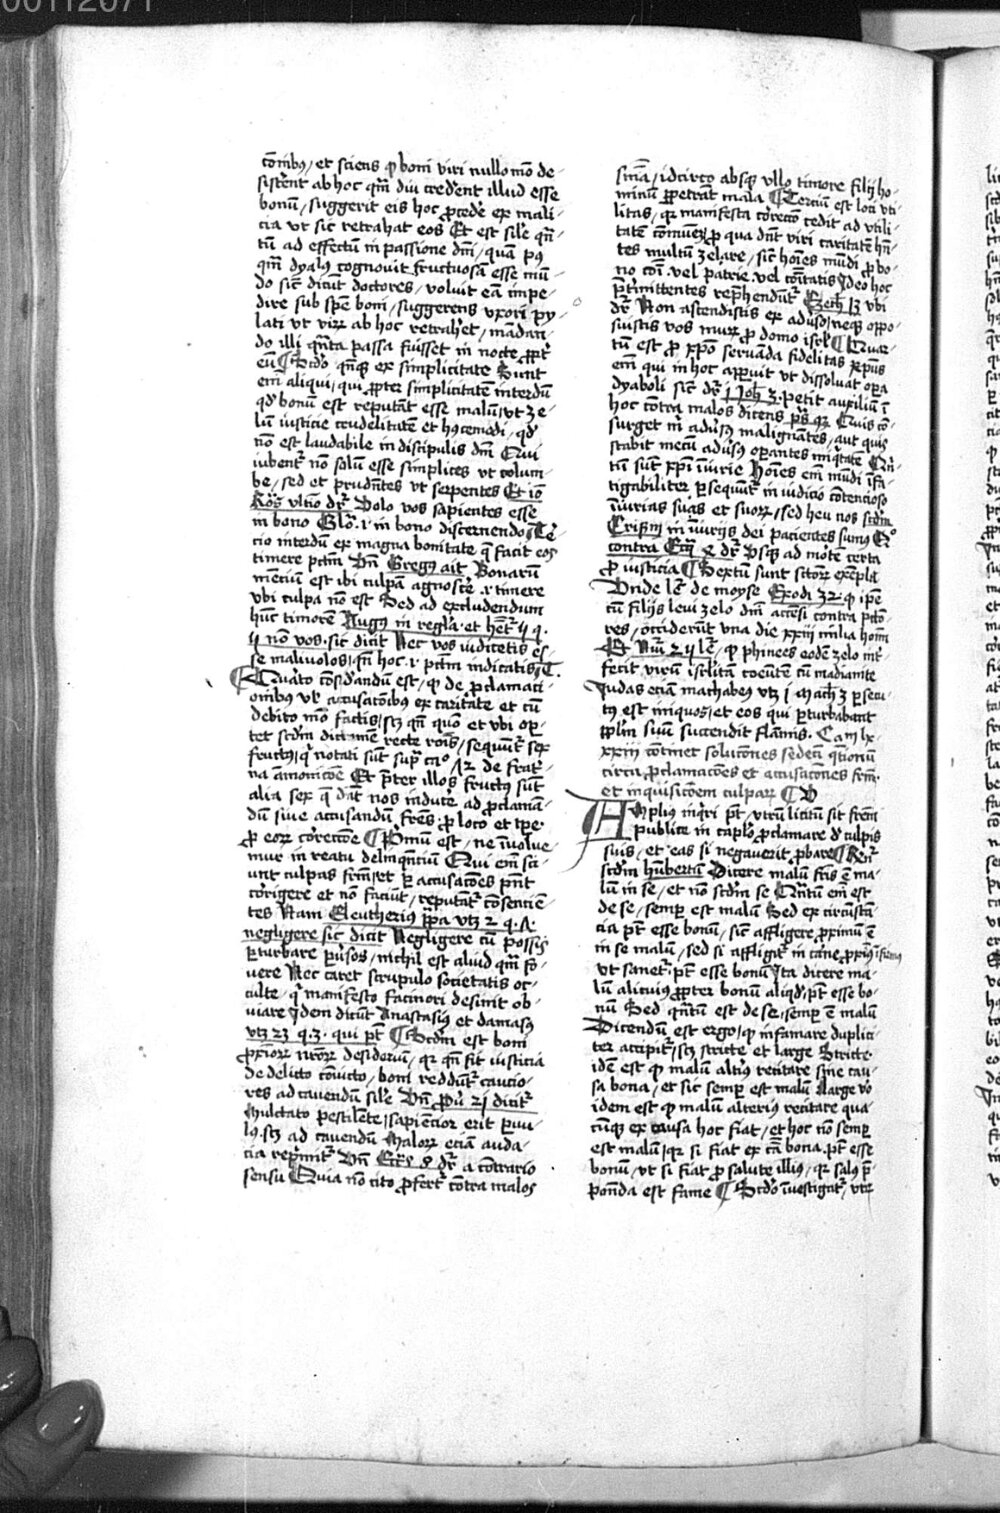 00112071
c̄onibꝰ, et sciens ꝙ boni viri nullo mō de-
sistēnt ab hoc qm̄ diu credēnt illud esse
bonū, suggerit eis hoc ꝓcedē ex mali-
cia vt sic retrahat eos Et est sil'e
tū ad effectū in passione dn̄i, quā pꝰ
qm̄ dyalꝰ cognovit fructuosā esse mū-
do sic̄ dicūt doctores, voluit eā impe-
dire sub spē boni, suggerens vxori py-
lati vt virū ab hoc retrahēt, mādan-
do illi qn̄ta passa fuisset in nocte ꝓpt̄
eū ¶ Scd̄o ex simplicitate Sunt
em̄ aliqui, qui ꝓpter simplicitatē interdū
qd' bonū est reputāt esse malū, vt ze-
lū iusticie crudelitatē et hꝰcemodi, qd'
nō est laudabile in discipulis dn̄i Qui
iubent̄ nō solū esse simplices vt colum-
be, sed et prudn̄tes vt serpentes Et io
Ro. vltīo dr̄ Volo vos sapientes esse
in bono Glo. i. in bono discernendo ¶ Te-
cio interdū ex magna bonitate q̄ facit eos
timere pctm̄ Vn̄ Gregꝰ ait Bonarū
mēciū est ibi culpā agnoscē .i. timere
vbi culpa nō est Sed ad excludendum
hūc timorē Augꝰ in regl'a
nō vos. sic dicit Nec vos iudicetis es-
se malivolos, qn̄ hoc .i. pctm̄ indicatis ¶
Quarto cōsid'andū est, ꝙ de ꝓclamati-
onibus vl' accusacōibꝰ ex caritate et cū
debito mō factis, scz qn̄ quō et vbi opꝫ-
tet scd̄m dictamē recte rōnis, sequūt̄ sex
fructꝰ, q̄ notati sūt sup̄ de frat̄-
na āmonicōe Et p̄ter illos fructꝰ sūt
alia sex q̄ dāt nos inducē ad ꝓclamā-
dū sive accusandū frēs, ꝓ loco et tp̄e
ꝓ eoꝝ correctōe ¶ Prīmū est, ne īvolve-
mur in reatu delinqn̄ciū Qui em̄ sci-
unt culpas frm̄, et ꝑ accusacōes pn̄t
corrigere et nō faciūt, reputāt̄ cōsencie-
tes Nam Eleutheriꝰ pp̄a
negligere sic dicit Negligere cū possis
ꝑturbare ꝑv̄sos, nichil est aliud qm̄ fo-
vere Nec caret scrupulo societatis oc-
culte, q̄ manifesto facinori desinit ob-
viare Idem dicūt Anastasiꝰ et damasꝰ
23 q. 3. qui pt̄ ¶ Scd̄m est boni
ꝓximoꝝ desideriū, qꝛ qn̄ fit iusticia
de delicto cōvicto, boni reddūt̄ caucio-
res ad cavendū sil'e Vn̄ ꝓv̄ 21 dicit̄
Mulctato pestilēte, sapiencior erit parvu-
lꝰ, scz ad cavendū Maloꝝ eciā auda-
cia rep̄mit̄ Vn̄ Eccl's 8 dr̄ a cōtrario
sensu Quia nō cito ꝓfert̄ cōtra malos
sn̄ia, idcirco absqꝫ vllo timore filij ho-
minū ꝑpetrāt mala ¶ Terciū est loci vti-
litas, qꝛ manifesta correctō cedit ad vtili-
tatē cōmunē, ꝓ qua dn̄t viri caritatē hn̄-
tes multū zelare, sic̄ hoīes mūdi ꝓ bo-
no cōi vel patrie vel cōitatis Ideo hoc
p̄termittentes rep̄hendūt̄ Ezech 13 vbi
dr̄ Non ascendistis ex adv̄so, neqꝫ oppo-
suistis vos murū ꝓ domo isrl' ¶ Quar-
tū est ꝓ xp̄o servanda fidelitas
em̄ qui in hoc apꝑuit vt dissolvat opa
dyaboli sic̄ dr̄ 1 Joh 3. petit auxiliū ī
hoc cōtra malos dicens ps̄ Quis cō-
surget m̄ adv̄sꝰ malignātes, aut quis
stabit mecū adv̄sꝰ oꝑantes iniq̄tatē
tū sūt xp̄i iniurie Hoīes em̄ mūdi īfa-
tigabiliter ꝑsequūt̄ in iudicio cōtencioso
iniurias suas et suoꝝ, sed heu nos scd̄m
Crism̄ in iniurijs dei pacientes sumꝰ
contra Eccī 4 dr̄ Vsqꝫ ad mortē certa
ꝓ iusticia ¶ Sextū sunt sctoꝝ exēpla
Vnde le de moyse Exodi 32. ꝙ ip̄e
cū filijs levi zelo dn̄i accēsi contra pcto-
res, occiderūt una die xxiii milia hoīm
Et Num 25 le, ꝙ phinees eodē zelo int̄-
fecit virū isrlitā coeūtē cū madianite
Judas eciā machabeꝰ vtz 1 Mach 3 ꝑsecu-
tꝰ est iniquos, et eos qui ꝑturbabant
ppl'm suū succendit flāmis. Cam lx-
xxiii cōtinet solucōnes sedecī q̄tionū
circa ꝓclamacōes et accusacōnes frm̄
et inquisicōem culpaꝝ ¶
Amplius inq̄ri pt̄, vtrū licitū sit frēm
publice in capl'o ꝓclamare de culpis
suis, et eas si negaverit ꝓbare ¶
scd̄m hūbertū Dicere malū frīs ē ma-
lū in se, et nō scd̄m se Qn̄tū em̄ est
de se, semꝑ est malū Sed ex circūstā-
cia pt̄ esse bonū, sic̄ affligere ꝓximū ē
in se malū, sed si affligit̄ in carne ꝓximꝰ īfirmꝰ
vt sanet̄, pt̄ esse bonū Ita dicere ma-
lū alicuiꝰ ꝓpter bonū aliqd', pt̄ esse bo-
nū Sed qn̄tū est de se, semꝑ ē malū
Dicendū est ergo, ꝙ infamare duplici-
ter accipit̄, scz stricte et large Stricte
idē est ꝙ malū altīꝰ recitare sine cau-
sa bona, et sic semꝑ est malū Large vo
idem est ꝙ malū alteriꝰ recitare qua-
cūqꝫ ex causa hoc fiat, et hoc nō semꝑ
est malū, qꝛ si fiat ex cā bona, pt̄ esse
bonū, vt si fiat ꝓ salute illiꝰ, qꝛ salꝰ p̄-
ponēda est fame ¶ Scd̄o īvestigat̄, vtꝝ